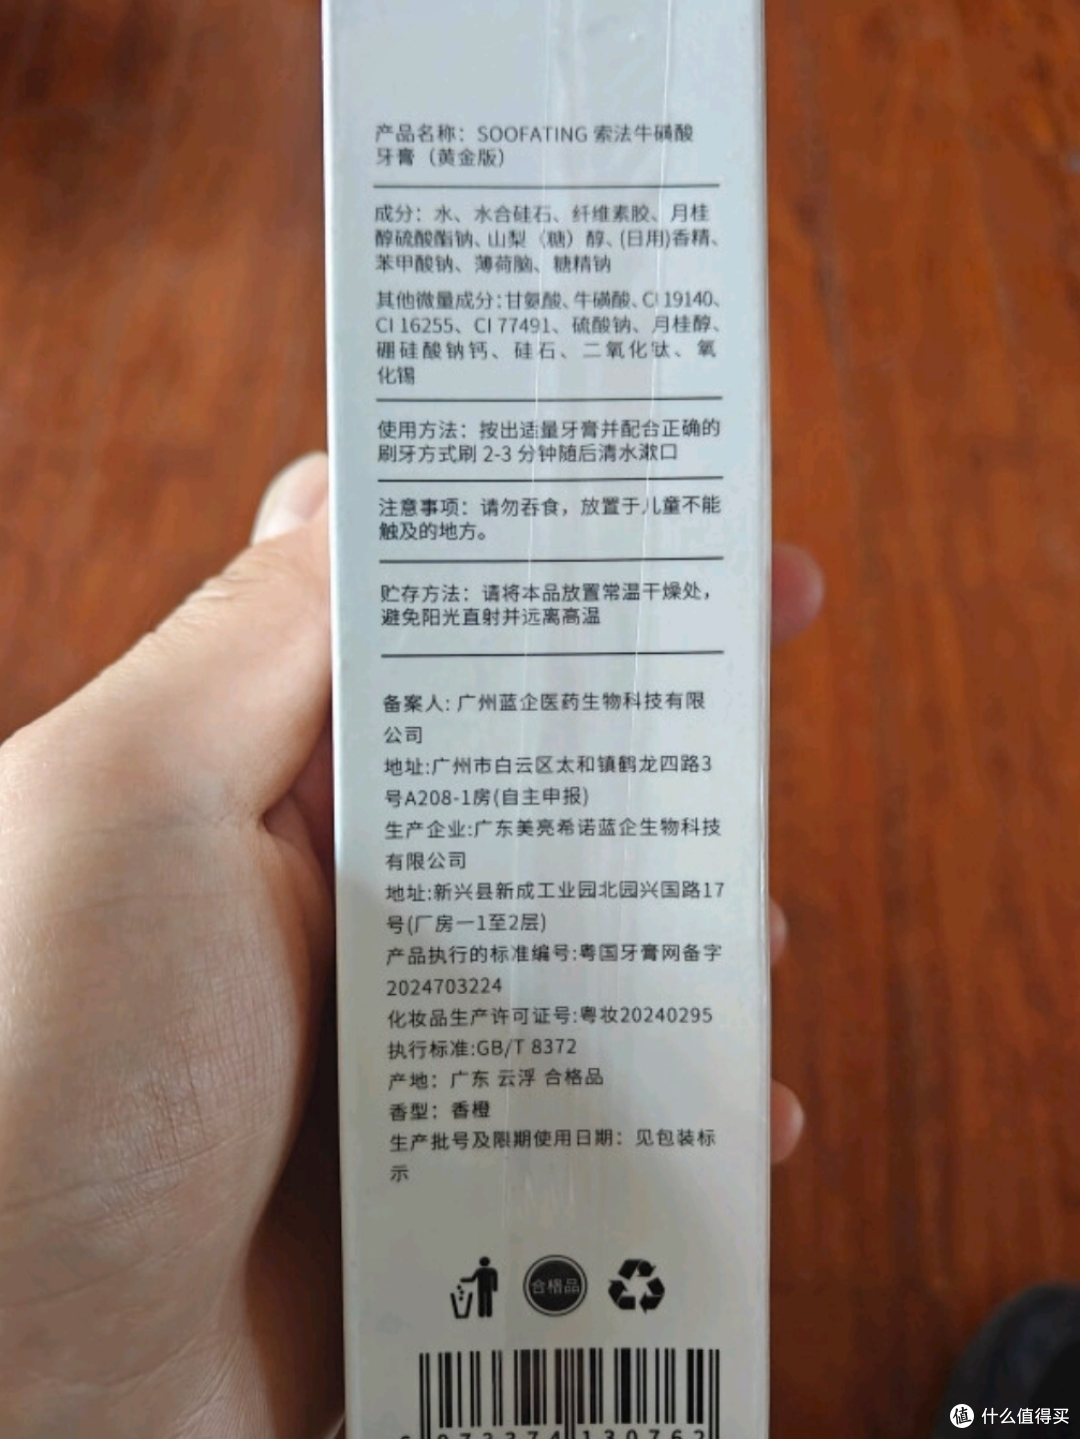 产品名称：SOOFATING 索法牛磺酸
牙膏（黄金版）
成分：水、水合硅石、纤维素胶、月桂
醇硫酸酯钠、山梨（糖）醇、(日用)香精、
苯甲酸钠、薄荷脑、糖精钠
其他微量成分：甘氨酸、牛磺酸、CI 19140、
CI 16255、CI 77491、硫酸钠、月桂醇、
硼硅酸钠钙、硅石、二氧化钛、氧
化锡
使用方法：按出适量牙膏并配合正确的
刷牙方式刷 2-3 分钟随后清水漱口
注意事项：请勿吞食，放置于儿童不能
触及的地方。
贮存方法：请将本品放置常温干燥处，
避免阳光直射并远离高温
备案人: 广州蓝企医药生物科技有限
公司
地址:广州市白云区太和镇鹤龙四路3
号A208-1房(自主申报)
生产企业:广东美亮希诺蓝企生物科技
有限公司
地址:新兴县新成工业园北园兴国路17
号(厂房一1至2层)
产品执行的标准编号:粤国牙膏网备字
2024703224
化妆品生产许可证号:粤妆20240295
执行标准:GB/T 8372
产地：广东 云浮 合格品
香型：香橙
生产批号及限期使用日期：见包装标
示
合格品
6 972374 130762
值 什么值得买